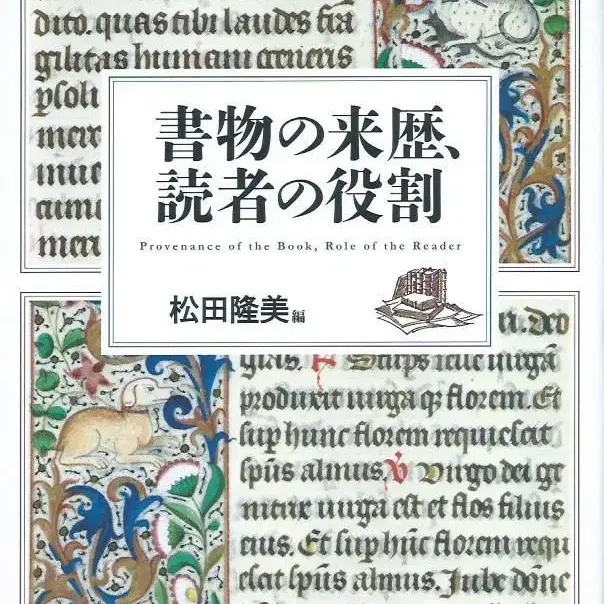 dito. quas tibi laudes fra
gilitas humani generis
psoli
mer
mue
cum
mer
書物の来歴、
読者の役割
Provenance of the Book, Role of the Reader
松田隆美編
produxit uirga q; florem. Et
sup hunc florem requiescit
spūs almus. ℣ Uirgo dei ge
nitrix uirga est et flos filius
eius. Et sup hūc florem requi
escit spūs almus. Jube dōne